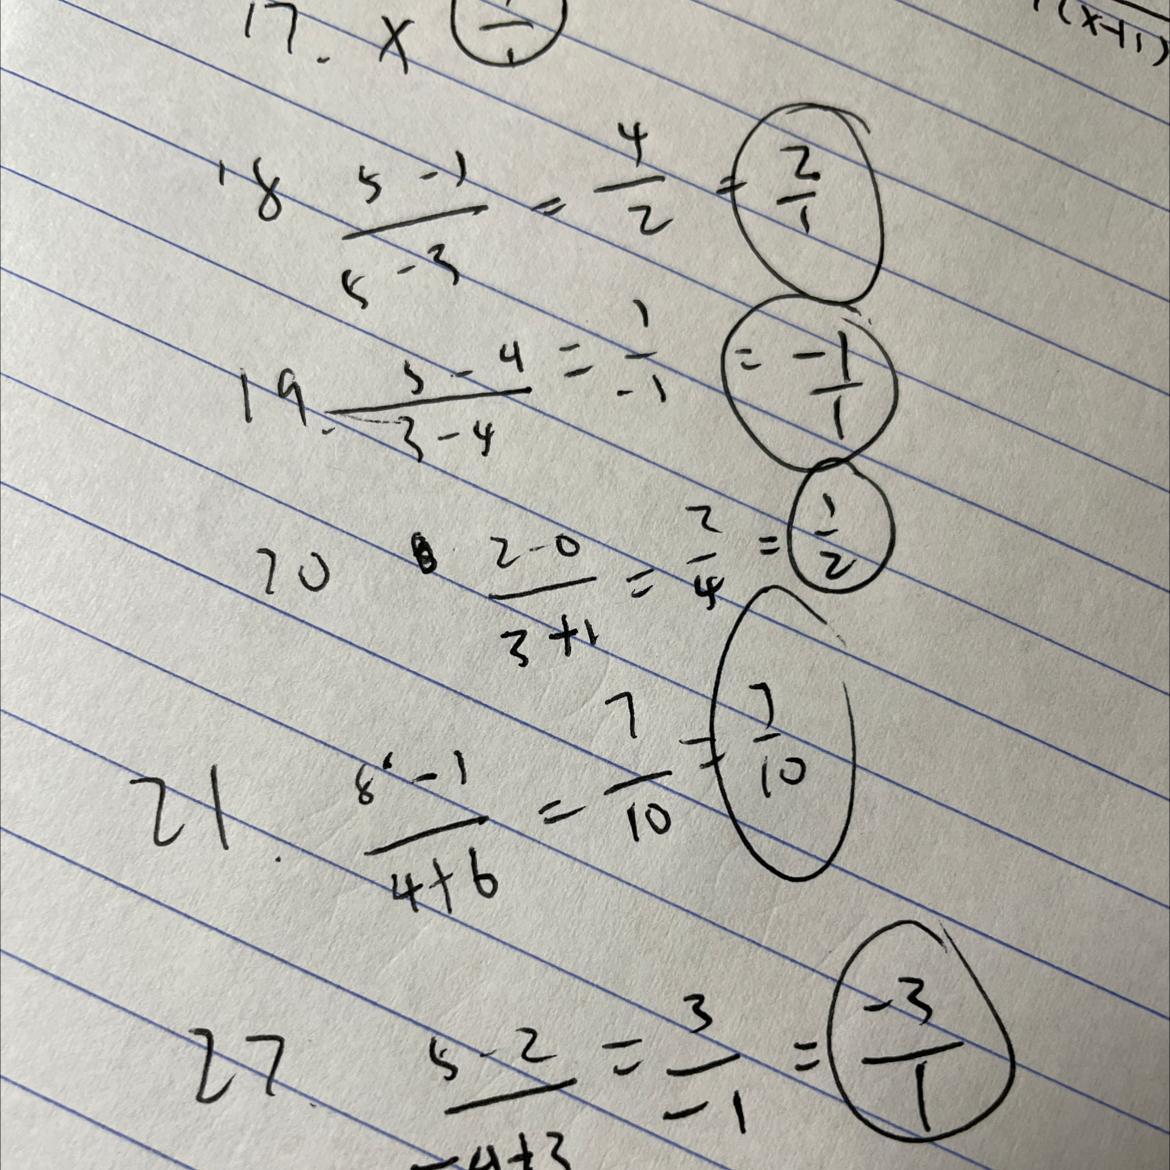 17. x
(x+1)
18 5 - 1 / 5 - 3 = 4 / 2 = 2 / 1
19. 5 - 4 / 3 - 4 = 1 / -1 = -1 / 1
20 2 - 0 / 3 + 1 = 2 / 4 = 1 / 2
21. 8 - 1 / 4 + 6 = 7 / 10 = 7 / 10
27. 5 - 2 / -4 + 3 = 3 / -1 = -3 / 1